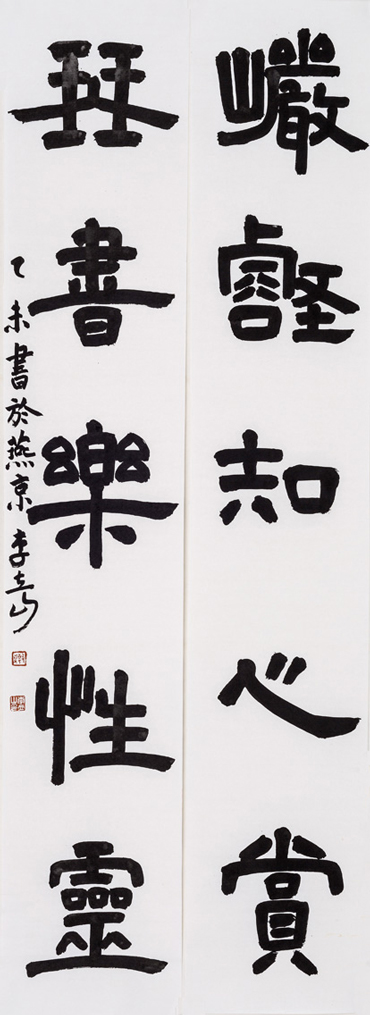 巖壑知心賞
琴書樂性靈
乙未書於燕京 李立山